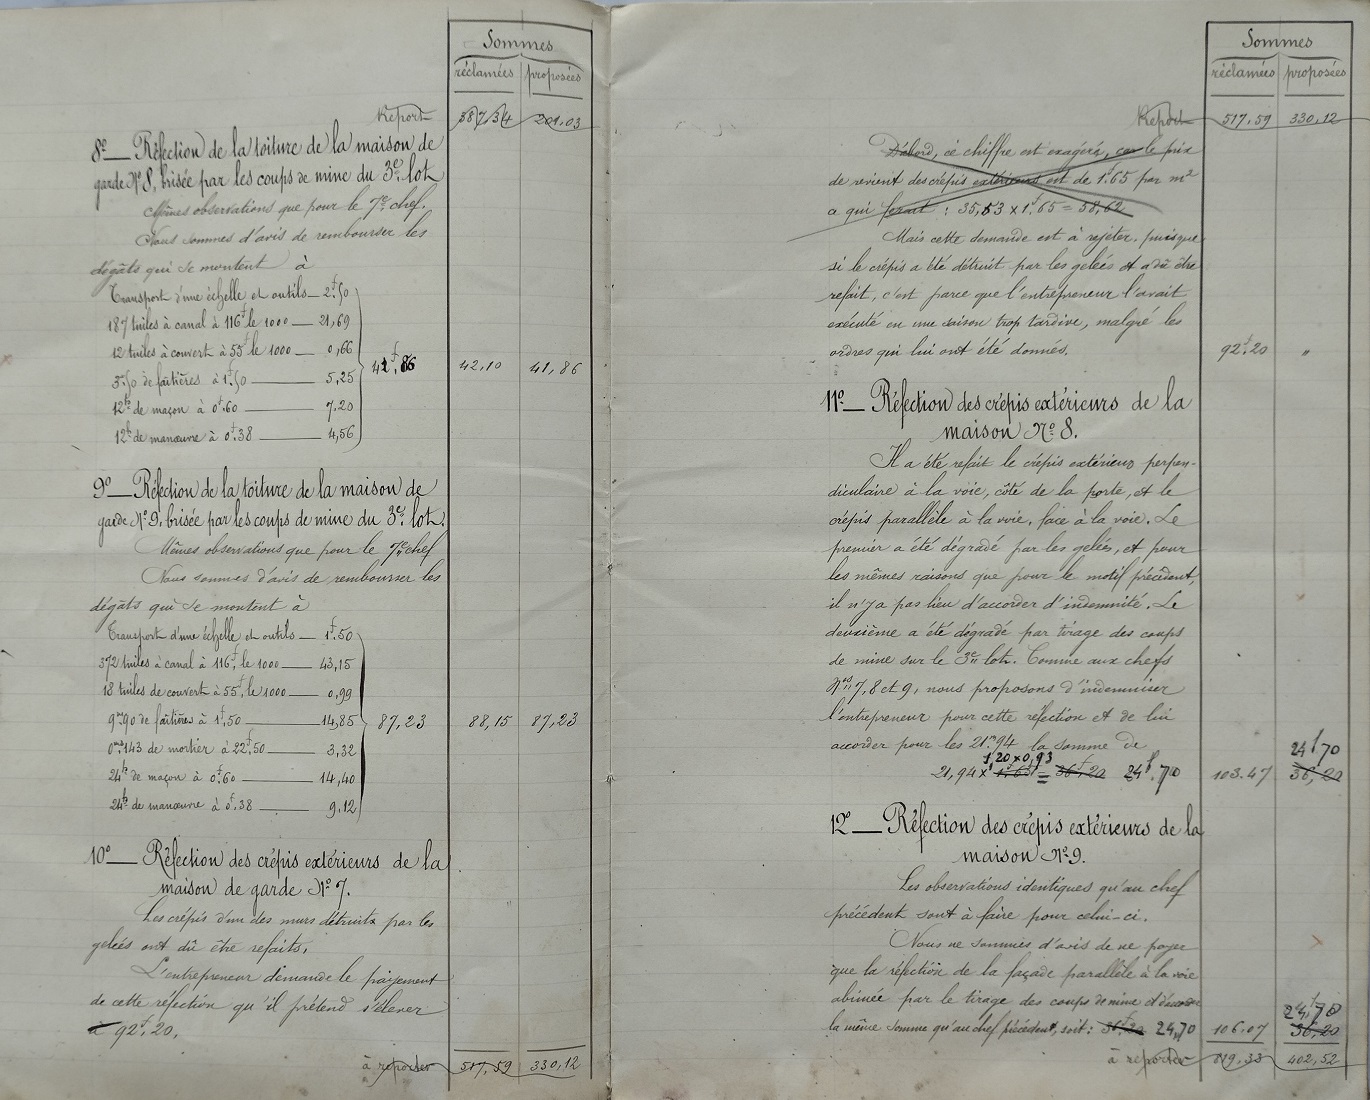 Sommes
réclamées proposées
Report 387,34 201,03
8º — Réfection de la toiture de la maison de
garde Nº 8, brisée par les coups de mine du 3e lot
Mêmes observations que pour le 7e chef.
Nous sommes d'avis de rembourser les
dégâts qui se montent à
Transport d'une échelle et outils — 2f,50
187 tuiles à canal à 116f le 1000 — 21,69
12 tuiles à couvert à 55f le 1000 — 0,66
3m,50 de faîtières à 1f,50 — 5,25
12h de maçon à 0f.60 — 7,20
12h de manœuvre à 0f.38 — 4,56
41f,86 42,10 41,86
9º — Réfection de la toiture de la maison de
garde Nº 9, brisée par les coups de mine du 3e lot.
Mêmes observations que pour le 7e chef
Nous sommes d'avis de rembourser les
dégâts qui se montent à
Transport d'une échelle et outils — 1f.50
372 tuiles à canal à 116f, le 1000 — 43,15
18 tuiles de couvert à 55f, le 1000 — 0,99
9m90 de faîtières à 1f,50 — 14,85
0m3,143 de mortier à 22f,50 — 3,32
24h de maçon à 0f.60 — 14,40
24h de manœuvre à 0f.38 — 9,12
87,23 88,15 87,23
10º — Réfection des crépis extérieurs de la
maison de garde Nº 7.
Les crépis d'un des murs détruits par les
gelées ont dû être refaits.
L'entrepreneur demande le paiement
de cette réfection qu'il prétend s'élever
à 92f,20.
à reporter 517,59 330,12
Sommes
réclamées proposées
Report 517,59 330,12
D'abord, ce chiffre est exagéré, car le prix
de revient des crépis extérieurs est de 1f.65 par m²
a qui ferait : 35,53 x 1f,65 = 58,62
Mais cette demande est à rejeter, puisque
si le crépis a été détruit par les gelées et a dû être
refait, c'est parce que l'entrepreneur l'avait
exécuté en une saison trop tardive, malgré les
ordres qui lui ont été donnés. 92f.20 "
11º — Réfection des crépis extérieurs de la
maison Nº 8.
Il a été refait le crépis extérieur perpen-
diculaire à la voie, côté de la porte, et le
crépis parallèle à la voie, face à la voie. Le
premier a été dégradé par les gelées, et pour
les mêmes raisons que pour le motif précédent,
il n'y a pas lieu d'accorder d'indemnité. Le
deuxième a été dégradé par tirage des coups
de mine sur le 3e lot. Comme aux chefs
Nos 7, 8 et 9, nous proposons d'indemniser
l'entrepreneur pour cette réfection et de lui
accorder pour les 21m.94 la somme de
24f70
1,20 x 0,93
21,94 x 1f65 = 36f,20 24f.70 103.47 36,20
12º — Réfection des crépis extérieurs de la
maison Nº 9.
Les observations identiques qu'au chef
précédent sont à faire pour celui-ci.
Nous ne sommes d'avis de ne payer
que la réfection de la façade parallèle à la voie
abimée par le tirage des coups de mine et d'accorder
24f,70
la même somme qu'au chef précédent, soit : 36f.20 24,70 106,07 36,20
à reporter 819.33 402,52